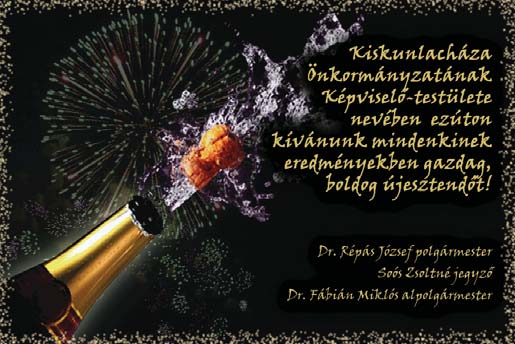 Kiskunlacháza
Önkormányzatának
Képviselő-testülete
nevében ezúton
kívánunk mindenkinek
eredményekben gazdag,
boldog újesztendőt!
Dr. Répás József polgármester
Soós Zsoltné jegyző
Dr. Fábián Miklós alpolgármester